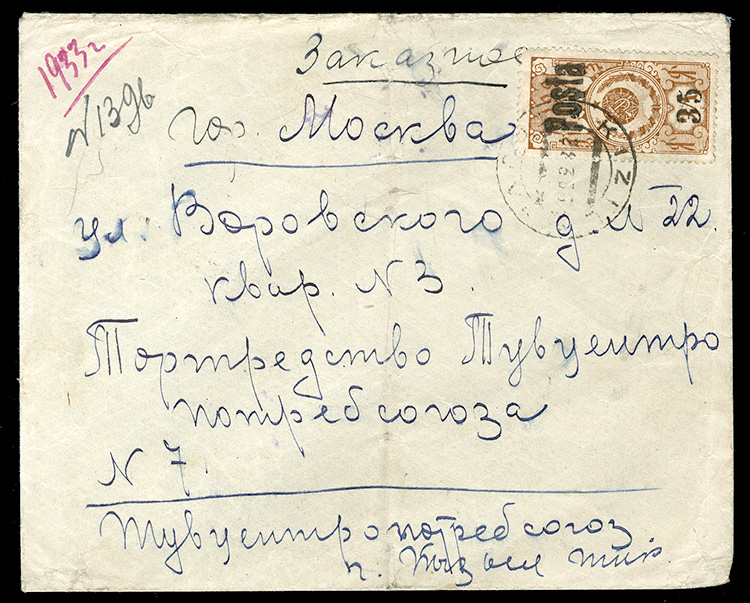 1933г
N 139б
Заказное
Posta
35
KIZIL
гор. Москва
ул. Воровского д N 22.
квар. N 3.
Торгпредство Тувцентро
потребсоюза
N 7
Тувцентропотребсоюз
г. Кызыл